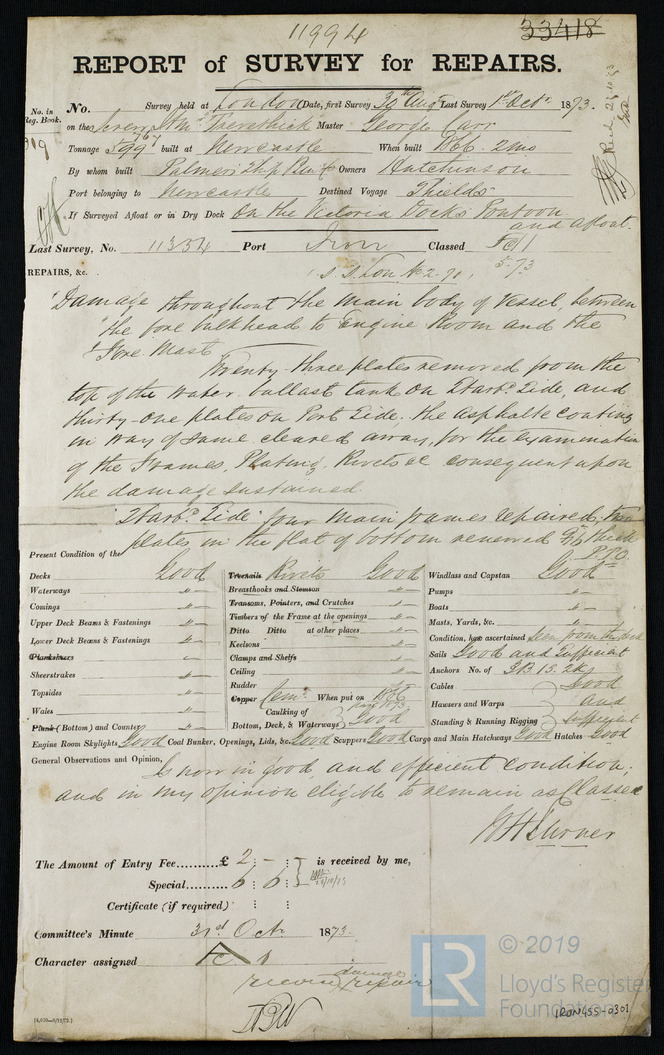 11994
33418
REPORT of SURVEY for REPAIRS.
No. in Reg. Book.
No. Survey held at London Date, first Survey 30th Aug Last Survey 1st Octr 1873.
on the Screw Str "Trevethick" Master George Carr
Tonnage 899 67 built at Newcastle When built 1866. 2mo
By whom built Palmers Owners Hutchinson
Port belonging to Newcastle Destined Voyage Shields
If Surveyed Afloat or in Dry Dock On the Victoria Docks Pontoon
and afloat.
Last Survey, No. 11354 Port Iron Classed
5.73
REPAIRS, &c.
"Damage throughout the main body of Vessel, between
"the fore bulkhead to Engine Room and the
"Fore Mast
Twenty-three plates removed from the
top of the water ballast tank on Starbd Side, and
thirty-one plates on Port Side. the asphalte coating
in way of same cleared away, for the examination
of the Frames, Plating, Rivets &c consequent upon
the damage sustained.
"Starbd Side" four main frames repaired, two
plates in the flat of bottom renewed
P.T.O.
Present Condition of the
Decks Good
Waterways "
Comings "
Upper Deck Beams & Fastenings "
Lower Deck Beams & Fastenings "
Plankshears
Sheerstrakes "
Topsides "
Wales "
Plank (Bottom) and Counter "
Treenails Rivets Good
Breasthooks and Stemson "
Transoms, Pointers, and Crutches "
Timbers of the Frame at the openings "
Ditto Ditto at other places "
Keelsons "
Clamps and Shelfs "
Ceiling "
Rudder "
Copper Cemt When put on 1866
Caulking of Bottom, Deck, & Waterways Good
Windlass and Capstan Good
Pumps "
Boats "
Masts, Yards, &c. "
Condition, how ascertained Seen from the deck
Sails Good and Sufficient
Anchors No. of 3B. 1S. 2K
Cables Good
Hawsers and Warps and
Standing & Running Rigging Sufficient
Engine Room Skylights Good Coal Bunker, Openings, Lids, &c. Good Scuppers Good Cargo and Main Hatchways Good Hatches Good
General Observations and Opinion,
Is now in good and efficient condition;
and in my opinion eligible to remain as Classed
The Amount of Entry Fee..........£ 2 : - : is received by me,
Special.......... 6 : 6 :
Certificate (if required) : :
Committee's Minute 31st Octr 1873.
Character assigned
damage
repair
© 2019
LR
Lloyd's Register
Foundation
IRON455-0301